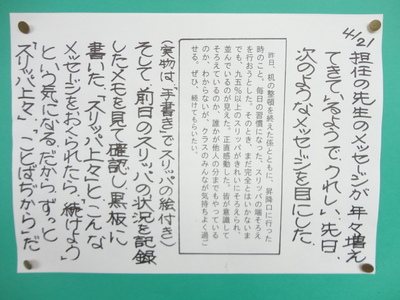 4/21
担任の先生のメッセージが、年々増え
てきているようで、うれしい。先日
次のようなメッセージを目にした。
昨日、机の整頓を終えた係とともに、昇降口に行った
時のこと。毎日の習慣になった、スリッパの端そろえ
を行おうとした。そのとき、まだ完全とはいかないま
でも、九五%以上のスリッパがきれいにそろえられ、
並んでいるのが見えた。正直感動した。皆が意識して
そろえているのか、誰かが他人の分までもやっている
のか、わからないが、クラスのみんなが気持ちよく過ご
せる。ぜひ、続けてもらいたい。
(実物は、手書きでスリッパの絵付き)
そして、前日のスリッパの状況を記録
したメモを見て確認し、黒板に
書いた、「スリッパ上々」と。こんな
メッセージをおくられたら、続けよう
という気になる。だから、ずっと
「スリッパ上々」、「とばぢから」だ